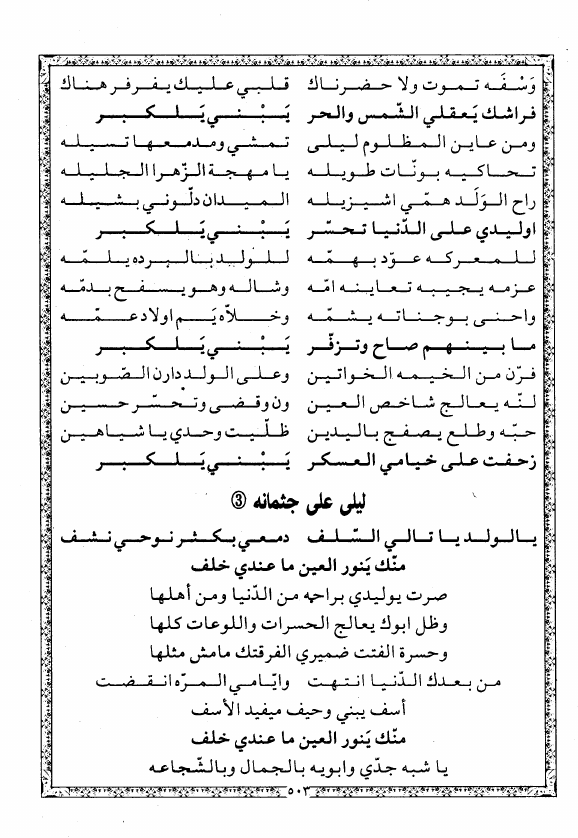 وَسْفَه تموت ولا حضرناك قلبي عليك يفرفر هناك
فراشك يَعقلي الشّمس والحر يَبْني يَلكبر
ومن عاين المظلوم ليلى تمشي ومدمعها تسيله
تحاكيه بونّات طويله يا مهجة الزّهرا الجليله
راح الوَلَد همّي اشيزيله الميدان دلّوني بشيله
اوليدي على الدّنيا تحسّر يَبْني يَلكبر
للمعركه عوّد بهمّه للولد بالبرده يلمّه
عزمه يجيبه تعاينه امّه وشاله وهو يسفح بدمّه
واحنى بوجناته يشمّه وخلاّه يَم اولاد عمّه
ما بينهم صاح وتزفّر يَبْني يَلكبر
فرّن من الخيمه الخواتين وعلى الولد دارن الصّوبين
لنّه يعالج شاخص العين ون وقضى وتحسّر حسين
حبّه وطلع يصفج باليدين ظلّيت وحدي يا شياهين
زحفت على خيامي العسكر يَبْني يَلكبر
ليلى على جثمانه ③
يالولد يا تالي السّلف دمعي بكثر نوحي نشف
منّك يَنور العين ما عندي خلف
صرت يوليدي براحه من الدّنيا ومن أهلها
وظل ابوك يعالج الحسرات واللوعات كلها
وحسرة الفتت ضميري الفرقتك مامش مثلها
من بعدك الدّنيا انتهت وايّامي المرّه انقضت
أسف يبني وحيف ميفيد الأسف
منّك يَنور العين ما عندي خلف
يا شبه جدّي وابويه بالجمال وبالشّجاعه
٥٠٣